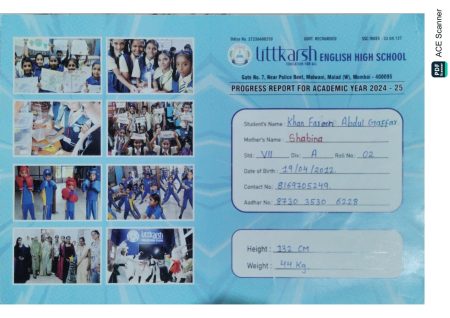 GOVT. RECOGNISED
Uttkarsh ENGLISH HIGH SCHOOL
EDUCATION FOR ALL
Gate No. 7, Near Police Beet, Malwani, Malad (W), Mumbai - 400095
PROGRESS REPORT FOR ACADEMIC YEAR 2024 - 25
Student's Name : Khan Abdul Gaffar
Mother's Name : Shabina
Std : VII Div : A Roll No : 02
Date of Birth : 19/04/2012
Contact No : 8169705249
Aadhar No : 8730 3530 6228
Height : 132 CM
Weight : 44 Kg
Uttkarsh
PDF
ACE Scanner